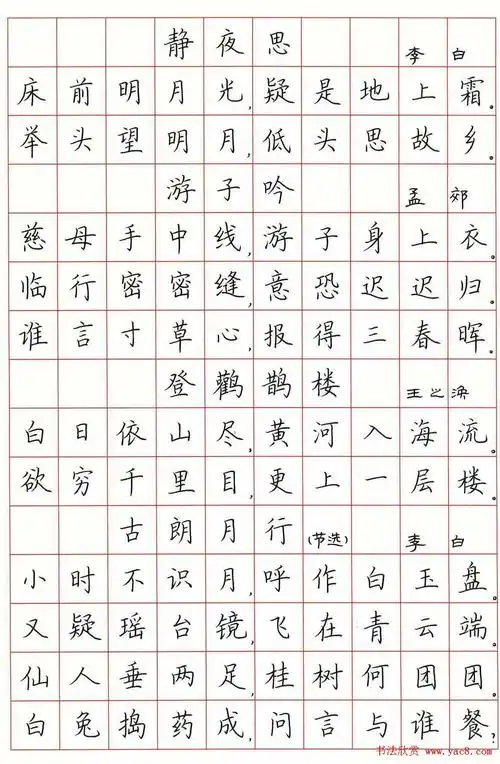 静夜思 李白
床前明月光,疑是地上霜。
举头望明月,低头思故乡。
游子吟 孟郊
慈母手中线,游子身上衣。
临行密密缝,意恐迟迟归。
谁言寸草心,报得三春晖。
登鹳鹊楼 王之涣
白日依山尽,黄河入海流。
欲穷千里目,更上一层楼。
古朗月行(节选) 李白
小时不识月,呼作白玉盘。
又疑瑶台镜,飞在青云端。
仙人垂两足,桂树何团团。
白兔捣药成,问言与谁餐?
书法欣赏 www.yac8.com